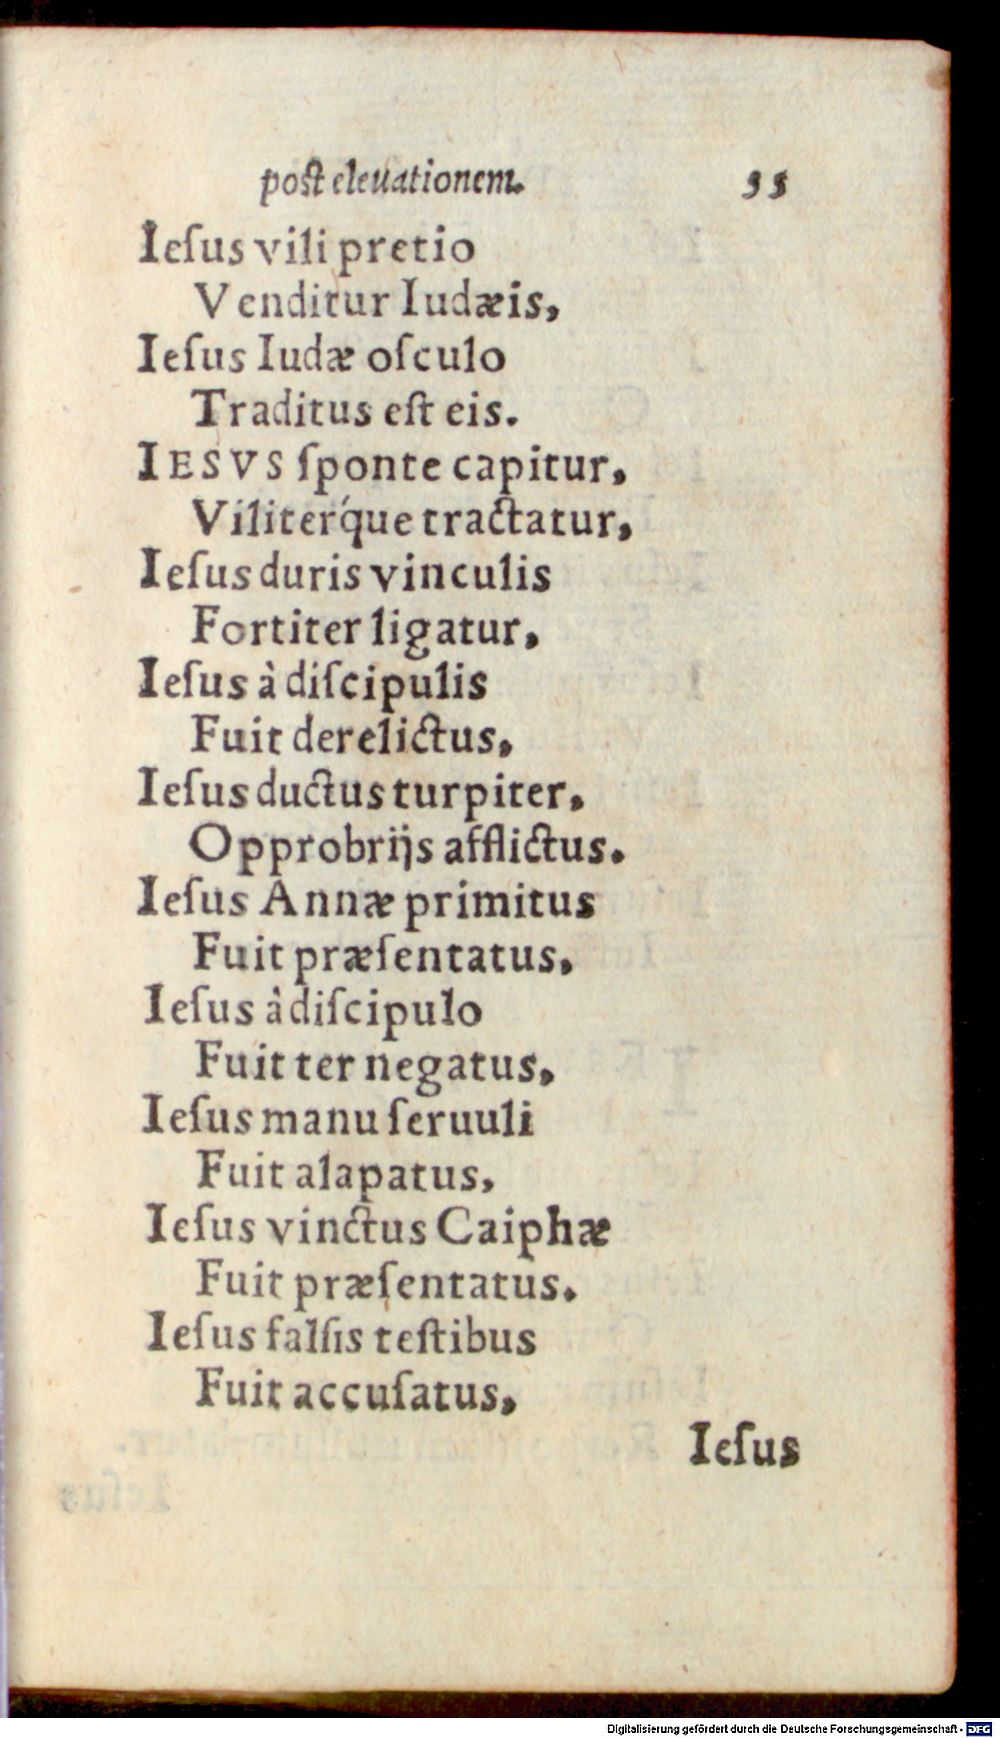 post eleuationem. 55
Ieſus vili pretio
Venditur Iudæis,
Ieſus Iudæ oſculo
Traditus eſt eis.
IESVS ſponte capitur,
Viliterq́ue tractatur,
Ieſus duris vinculis
Fortiter ligatur,
Ieſus à diſcipulis
Fuit derelictus,
Ieſus ductus turpiter,
Opprobrijs afflictus.
Ieſus Annæ primitus
Fuit præſentatus,
Ieſus à diſcipulo
Fuit ter negatus,
Ieſus manu ſeruuli
Fuit alapatus,
Ieſus vinctus Caiphæ
Fuit præſentatus.
Ieſus falſis teſtibus
Fuit accuſatus,
Ieſus
Digitalisierung gefördert durch die Deutsche Forschungsgemeinschaft - DFG